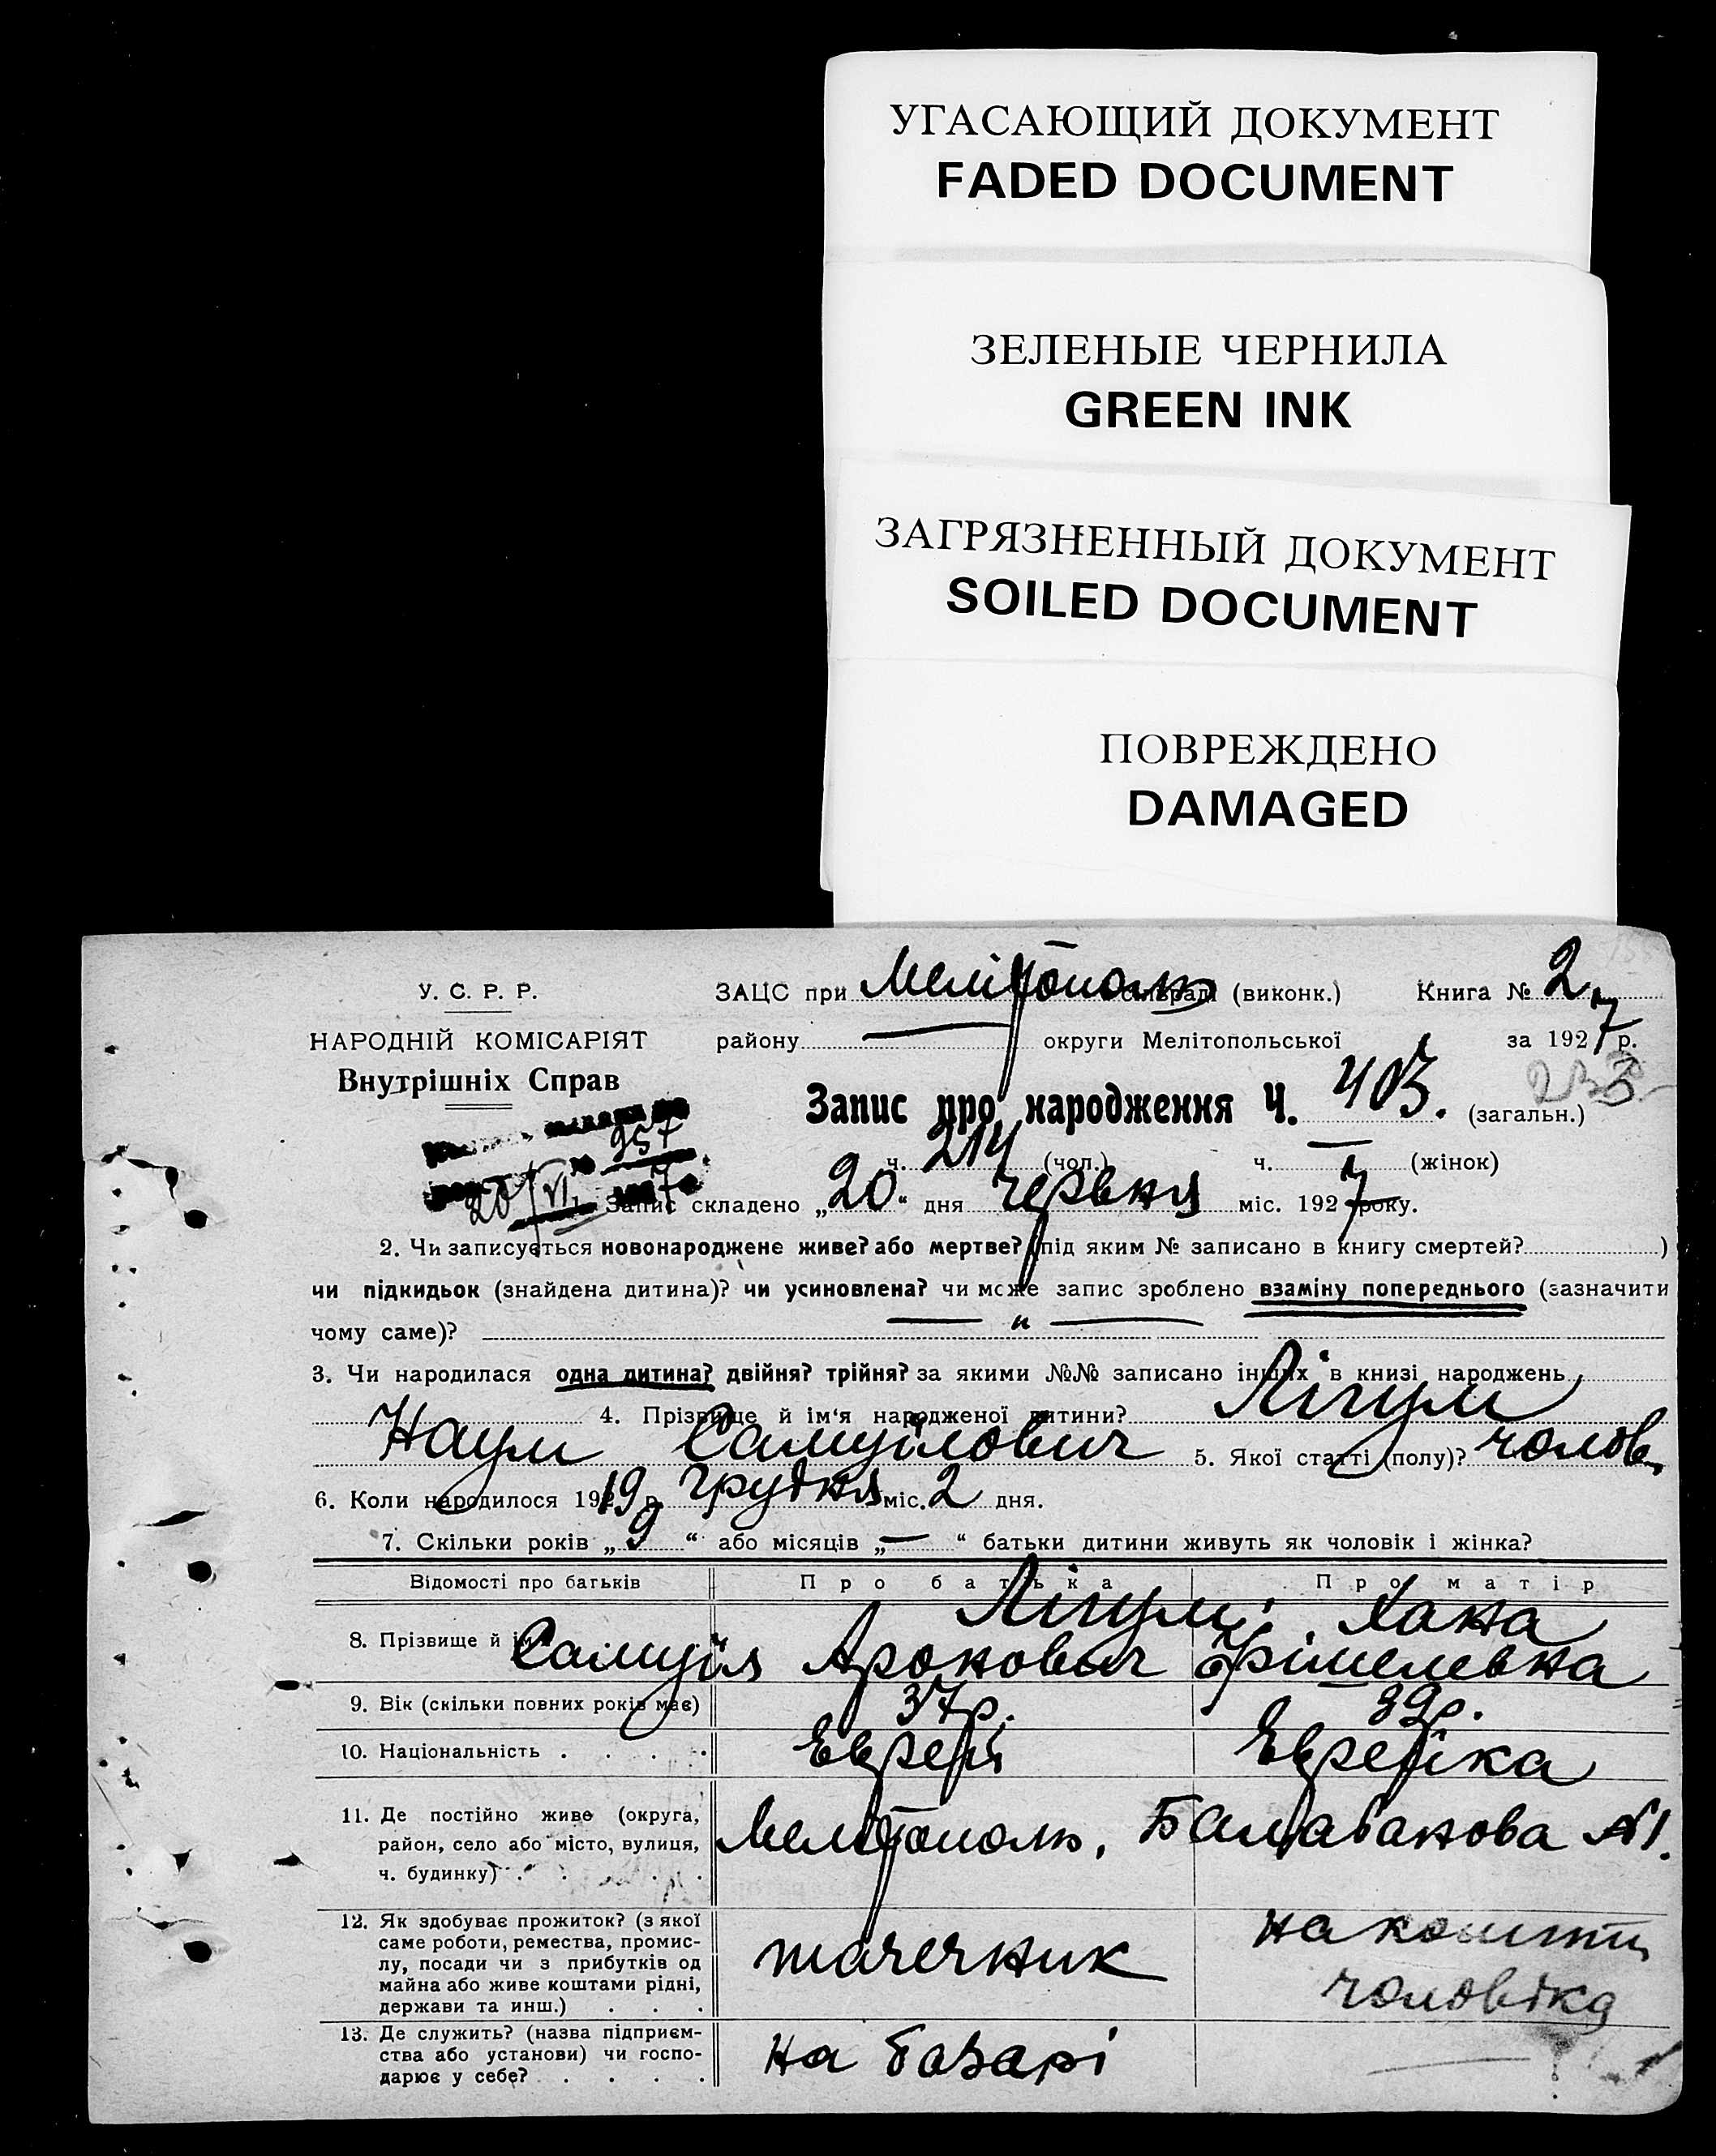 УГАСАЮЩИЙ ДОКУМЕНТ
FADED DOCUMENT
ЗЕЛЕНЫЕ ЧЕРНИЛА
GREEN INK
ЗАГРЯЗНЕННЫЙ ДОКУМЕНТ
SOILED DOCUMENT
ПОВРЕЖДЕНО
DAMAGED
У. С. Р. Р. ЗАЦС при Мелітополь (виконк.) Книга № 2
НАРОДНІЙ КОМІСАРІЯТ району — округи Мелітопольської за 1927 р.
Внутрішніх Справ
Запис про народження Ч. 403. (загальн.)
257 ч. 214 (чол.) ч. — (жінок)
20/VI Запис складено „20“ дня червня міс. 1927 року.
2. Чи записується новонароджене живе? або мертве? (під яким № записано в книгу смертей? )
чи підкидьок (знайдена дитина)? чи усиновлена? чи може запис зроблено взаміну попереднього (зазначити
чому саме)? — „ —
3. Чи народилася одна дитина? двійня? трійня? за якими №№ записано інших в книзі народжень
4. Прізвище й ім‘я народженої дитини? Лігум
Наум Самуілович 5. Якої статті (полу)? чолов.
6. Коли народилося 1919 р. грудня міс. 2 дня.
7. Скільки років „9“ або місяців „—“ батьки дитини живуть як чоловік і жінка?
Відомості про батьків Про батька Про матір
Лігум Хана
8. Прізвище й ім Самуіл Аронович Фішелевна
9. Вік (скільки повних років має) 37р. 39р.
10. Національність . . . . Еврей Еврейка
11. Де постійно живе (округа,
район, село або місто, вулиця, Мелітополь, Балабанова №1.
ч. будинку) . . . .
12. Як здобуває прожиток? (з якої на кошти
саме роботи, ремества, промис-
лу, посади чи з прибутків од тачечник
майна або живе коштами рідні, чоловіка
держави та инш.) . . .
13. Де служить? (назва підприєм-
ства або установи) чи госпо- на базарі —
дарює у себе? . . . .